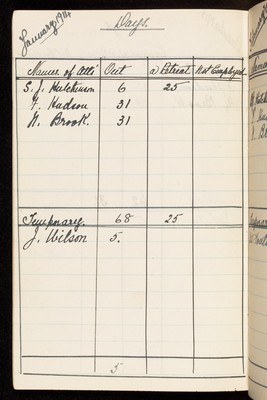 January 1914
Days.
Names of Atts Out a Retreat Not Employed
S. J. Hutchinson 6 25
F. Hudson 31
N. Brook. 31
Temporary. 68 25
J. Wilson 5.
5